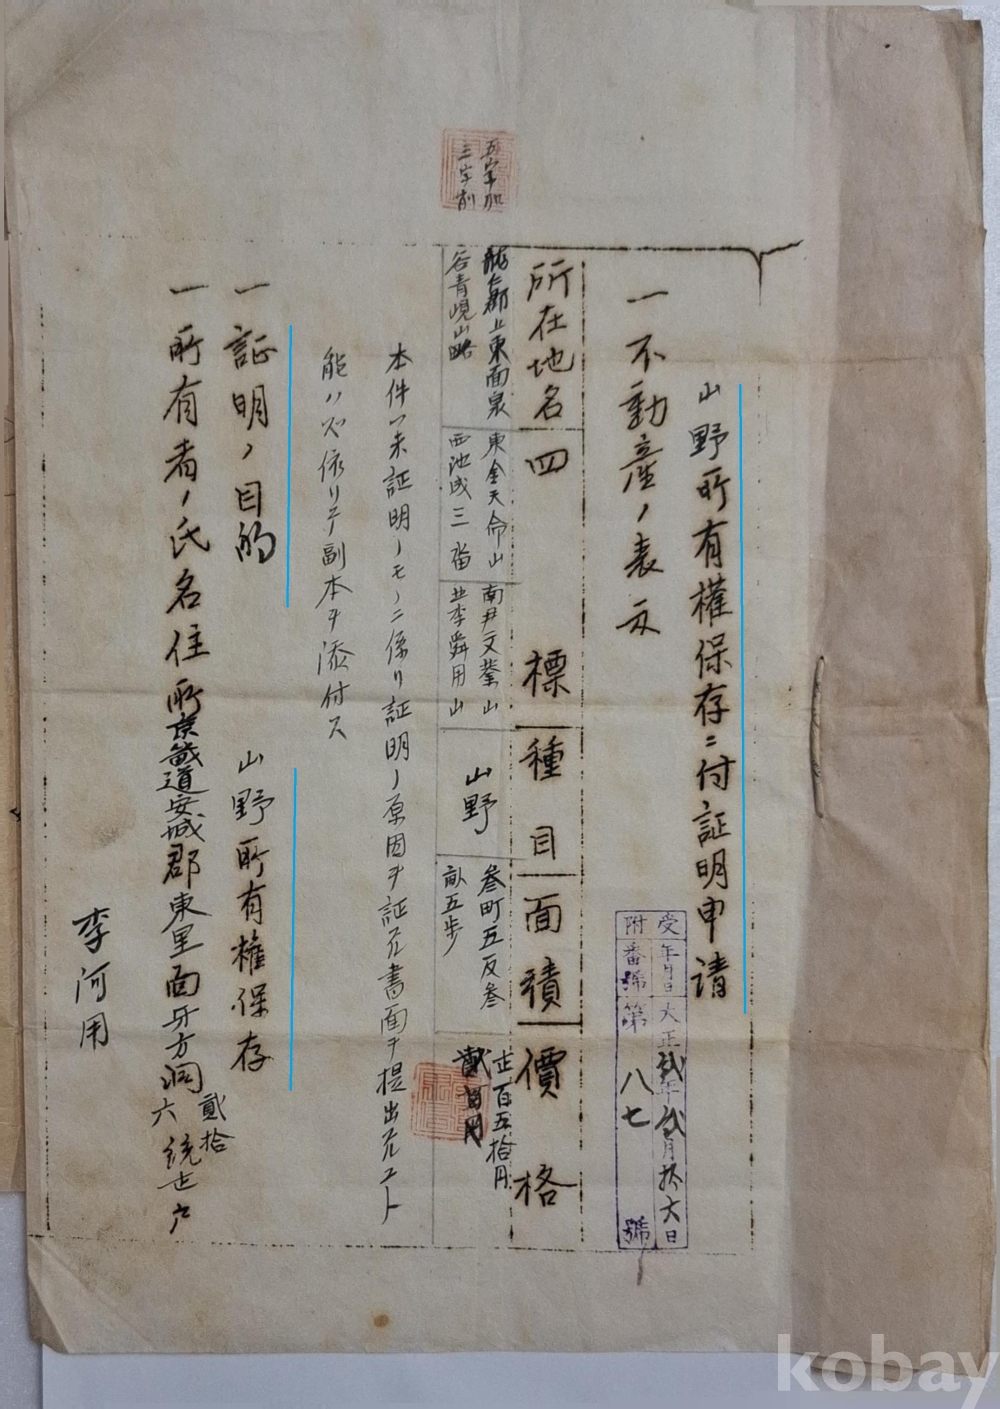 山野所有權保存ニ付証明申請
受年月日大正貳年貳月拾六日
附番號第八七號
一不動產ノ表示
所在地名
四標
種目
面積
價格
龍仁郡上東面泉
谷青峴山
東金天命山
西池成三畓
南尹文業山
北李舜用山
山野
叄町五反叄
畝五步
壱百五拾円
五字加
三字削
本件ハ未証明ノモノニ係リ証明ノ原因ヲ証スル書面ヲ提出スルコト
能ハズ依リテ副本ヲ添付ス
一証明ノ目的
山野所有權保存
一所有者ノ氏名住所京畿道安城郡東里面牙方洞貳拾六統七戶
李河用
kobay